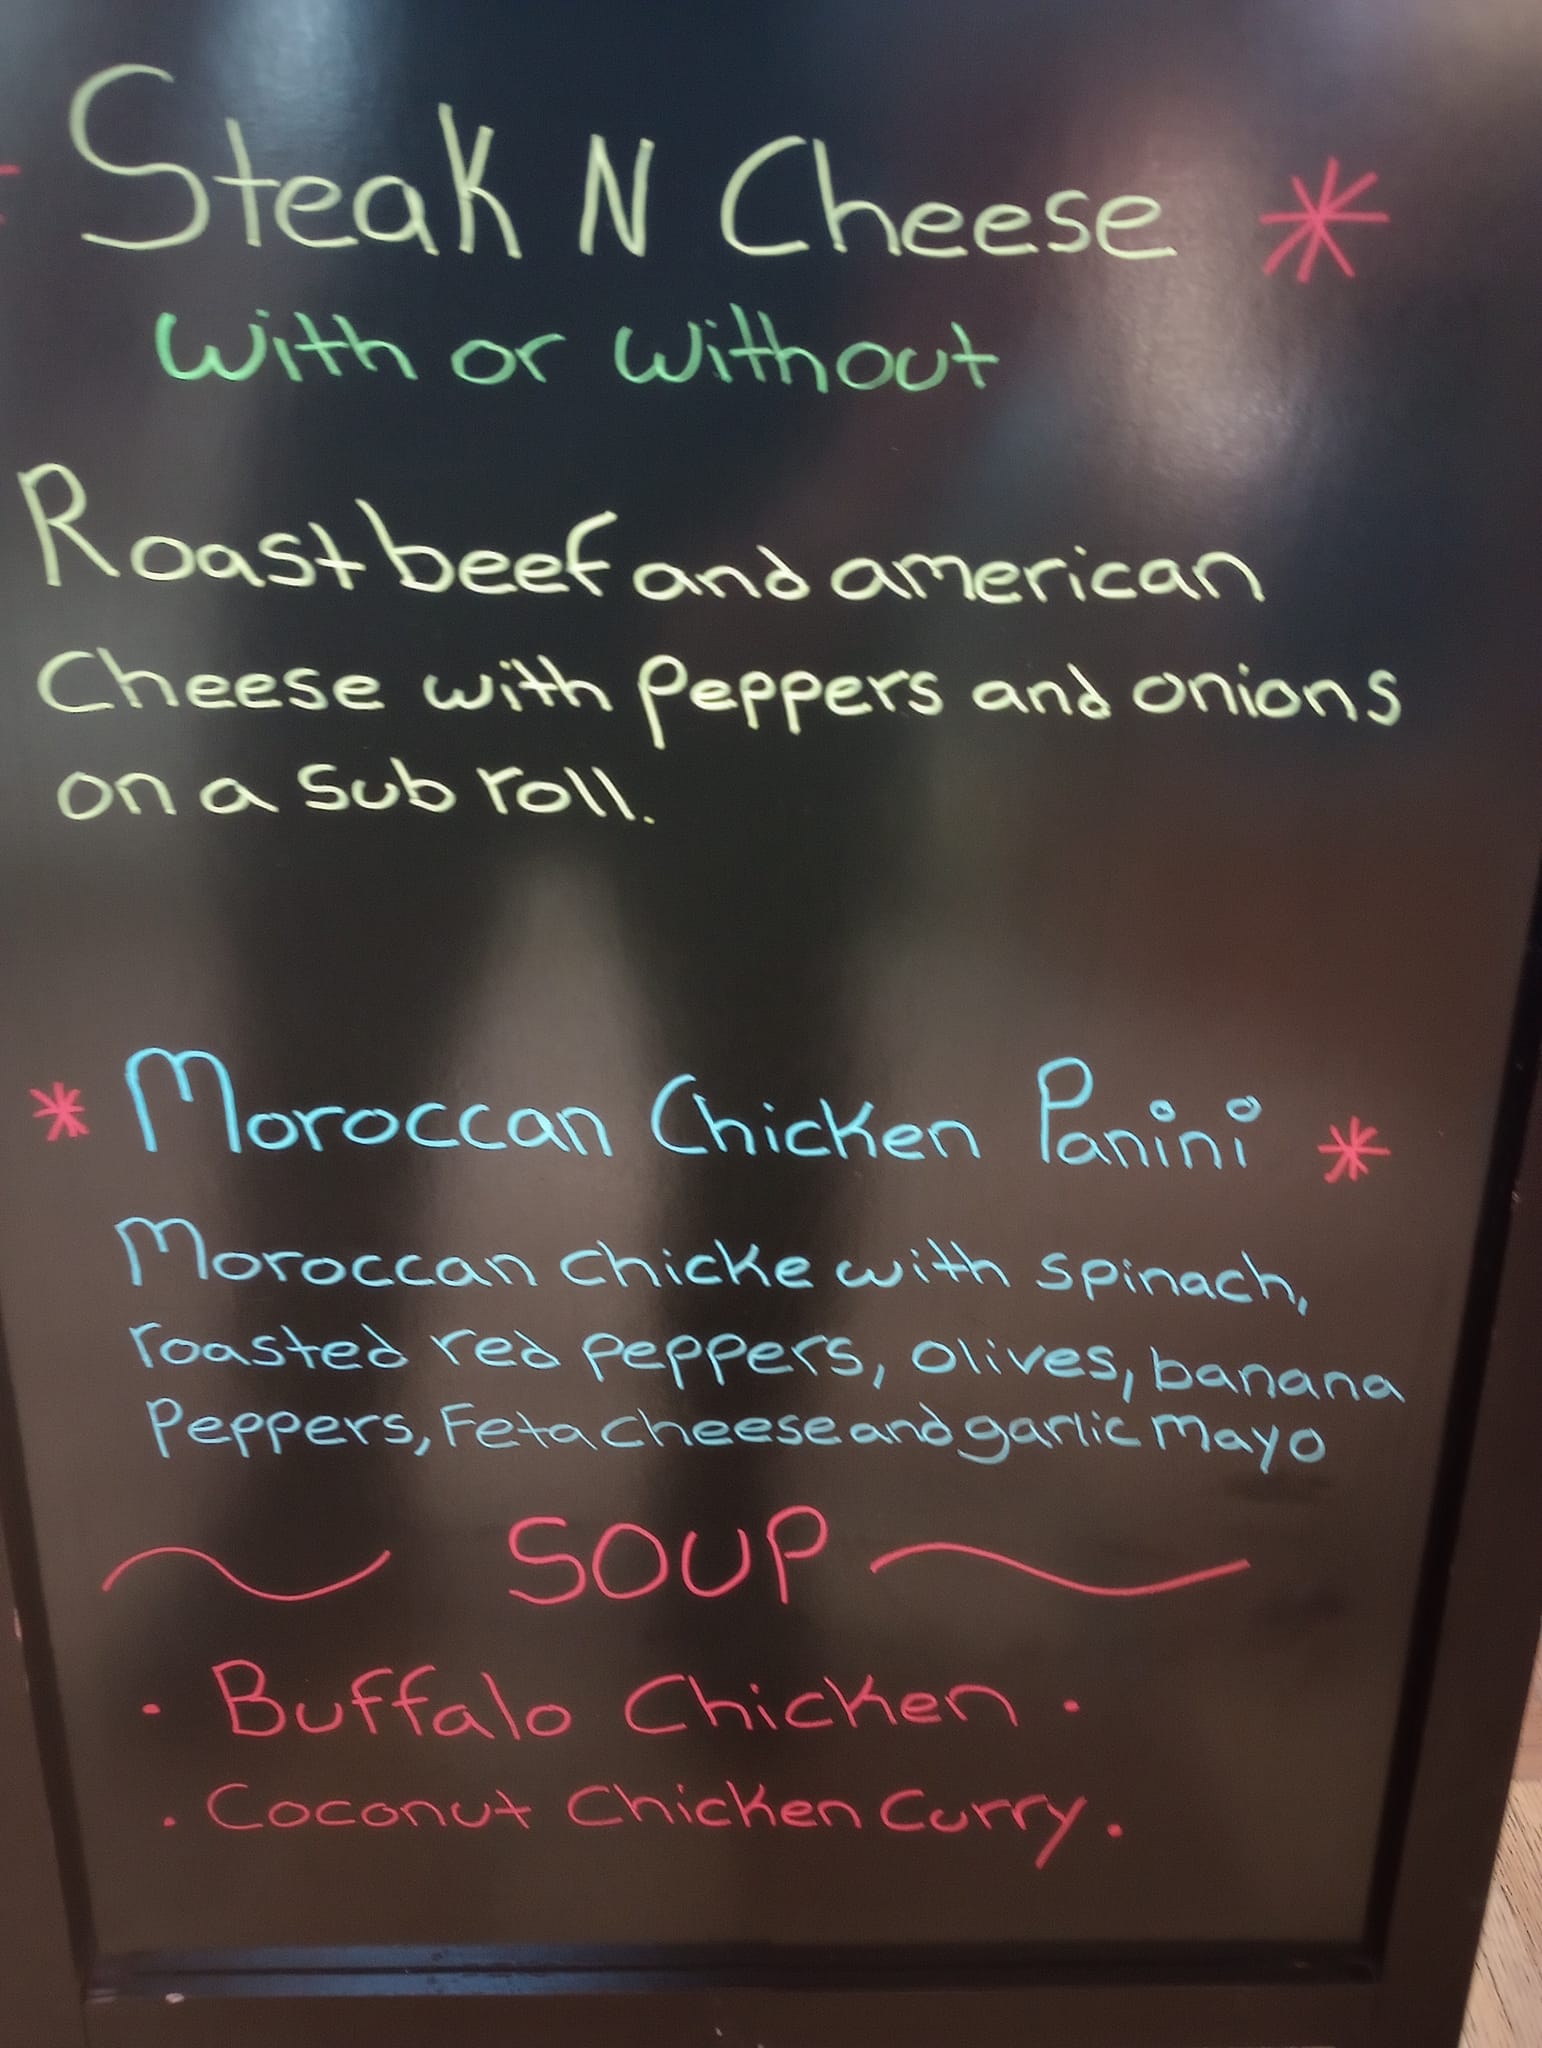 * Steak N Cheese *
with or without
Roast beef and american
Cheese with peppers and onions
on a sub roll.
* Moroccan Chicken Panini *
Moroccan chicke with spinach,
roasted red peppers, olives, banana
Peppers, Feta cheese and garlic mayo
SOUP
· Buffalo Chicken ·
· Coconut Chicken Curry ·